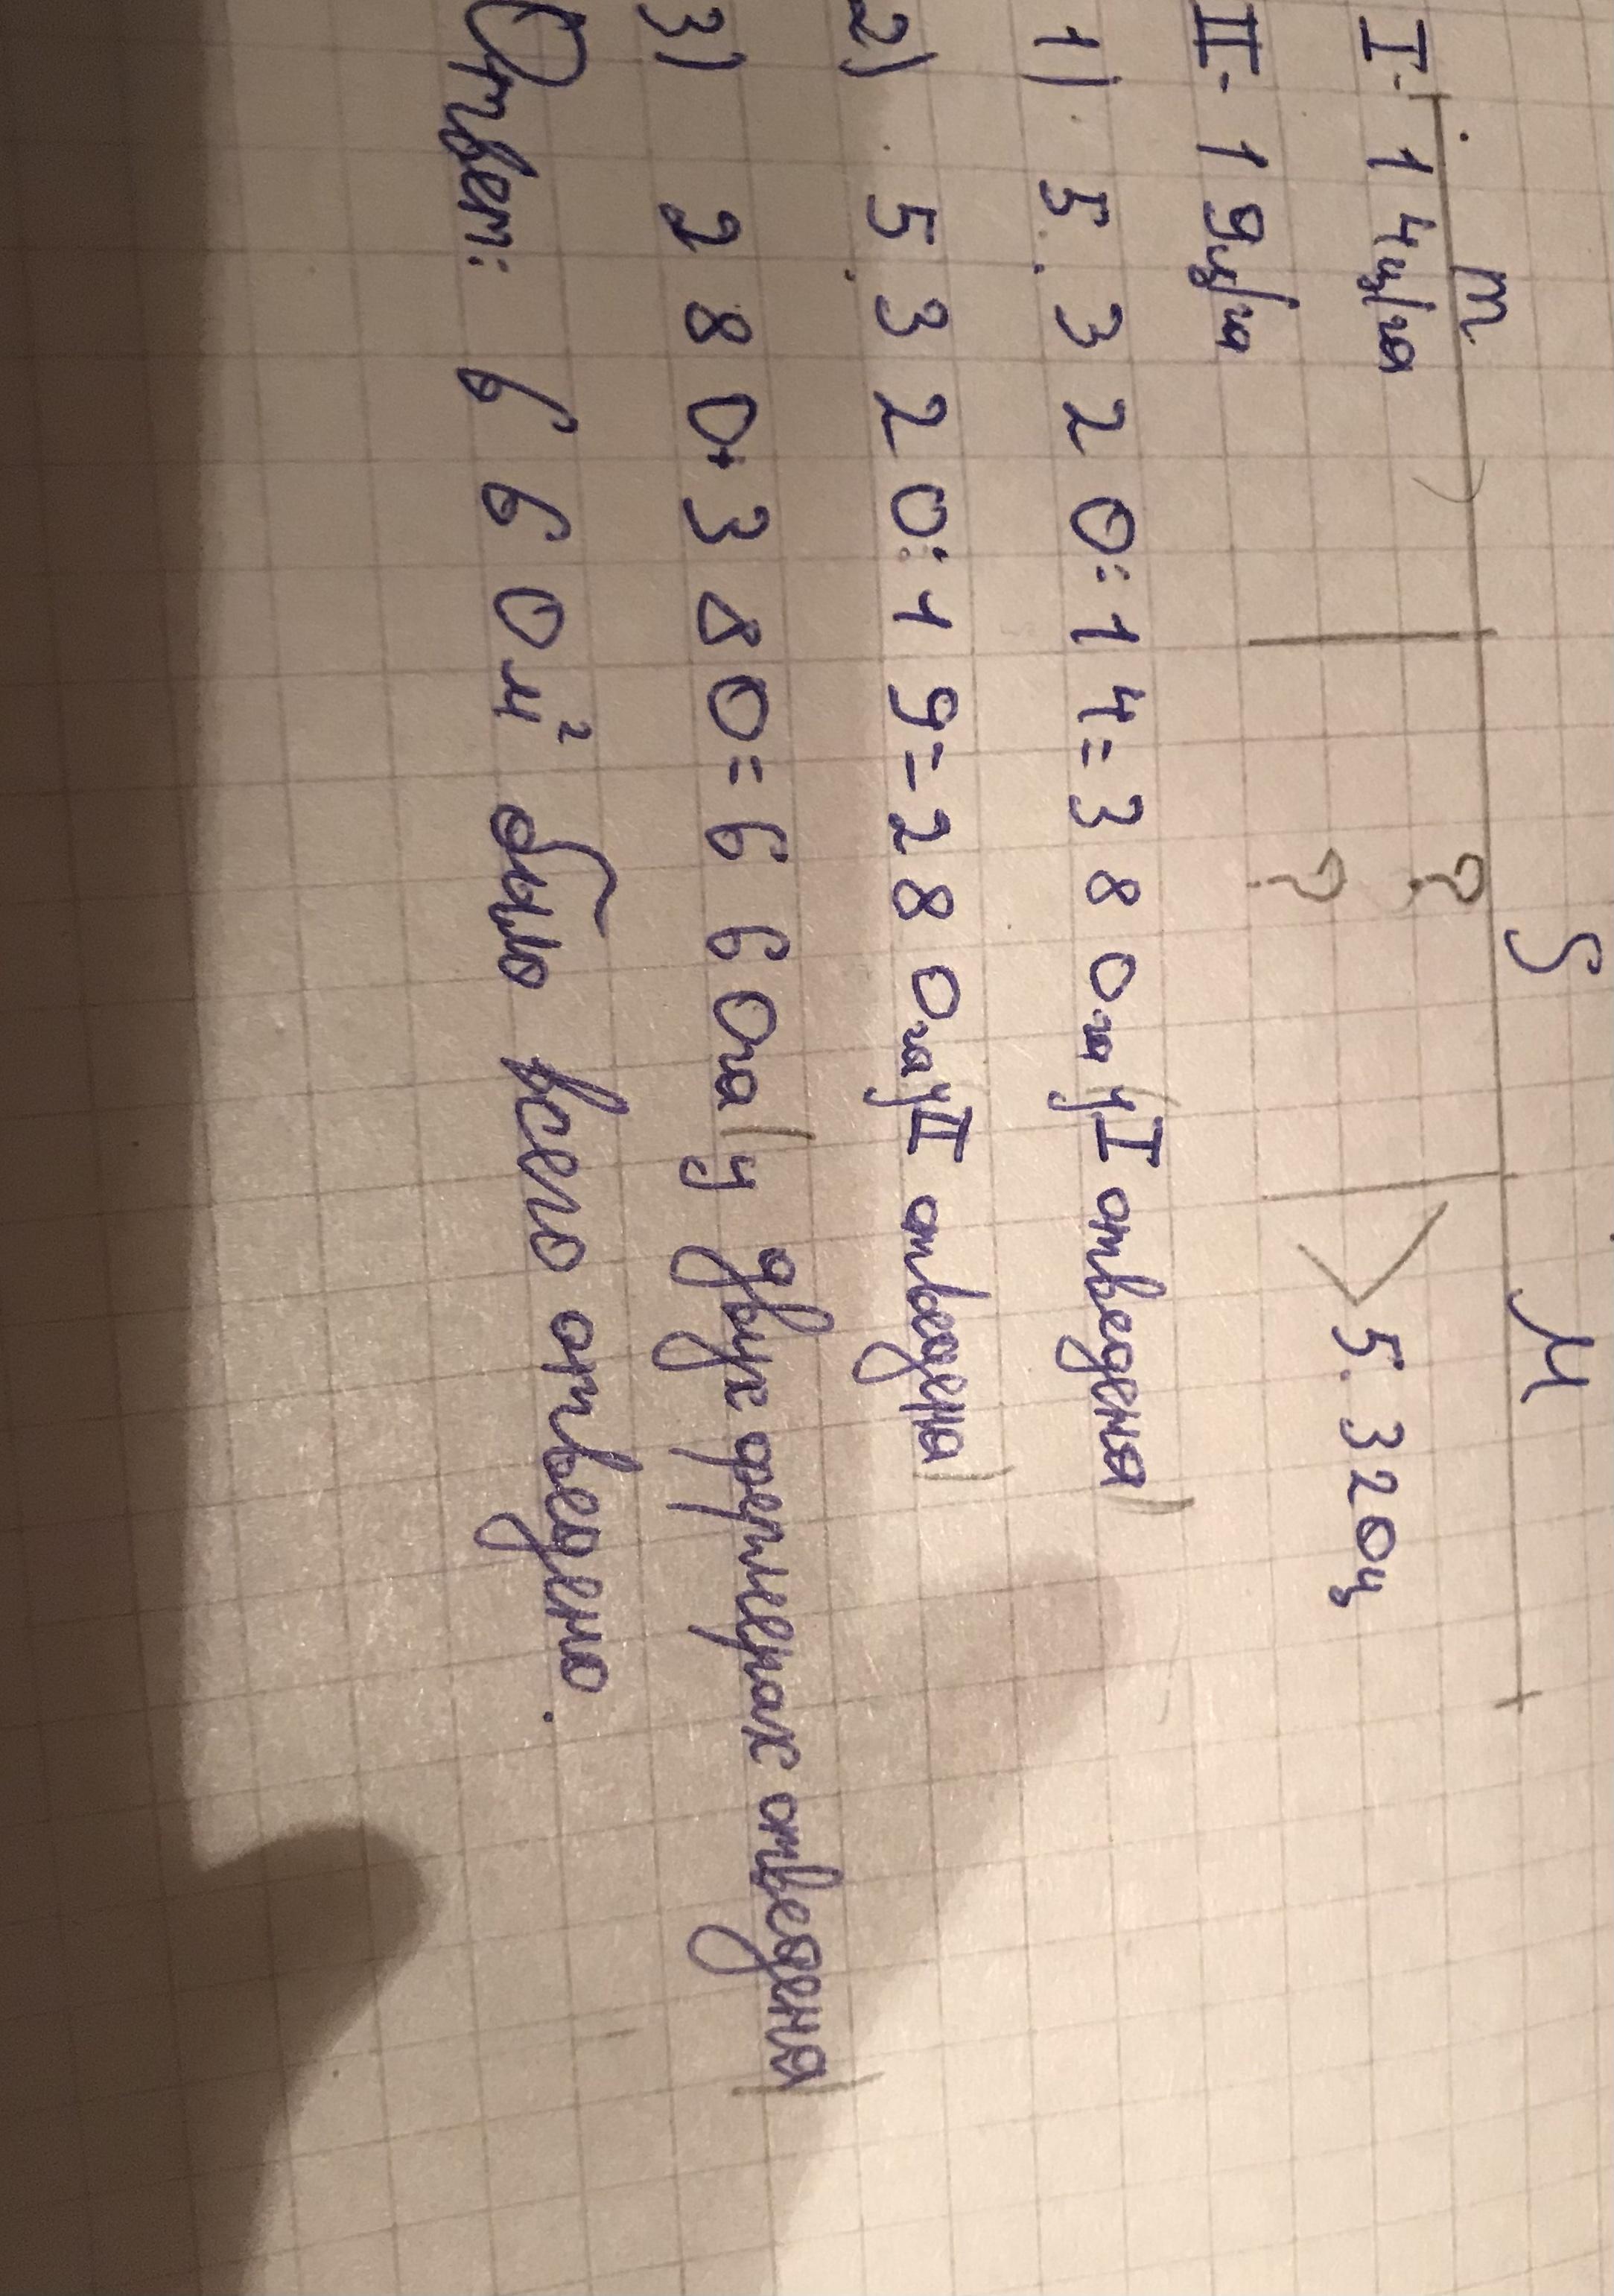 m S M
I - 14ц/га ? 5.320ц
II - 19ц/га ?
1) 5.320:14=380га у I отведена)
2) 5320:19=280га у II отведена)
3) 280+380=660га(у двух фермерах отведена)
Ответ: 660м² было всего отведено.